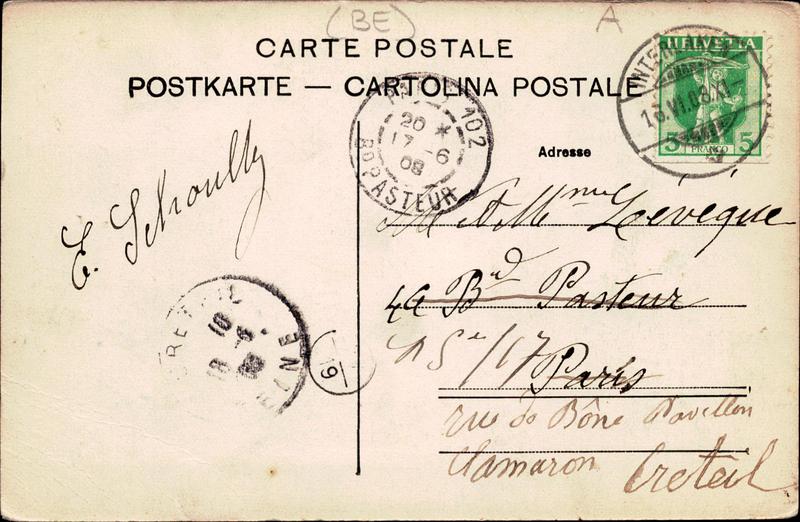 (BE)
A
CARTE POSTALE
POSTKARTE — CARTOLINA POSTALE
HELVETIA
5 FRANCO 5
INTERLAKEN
16.VI.08.XI
102
20 *
17 - 6
08
Bd PASTEUR
Adresse
E.
M. et Mme Lévêque
Bd Pasteur
Paris
rue de Bône Pavillon
Clamaron Creteil
CRETEIL
SEINE
19